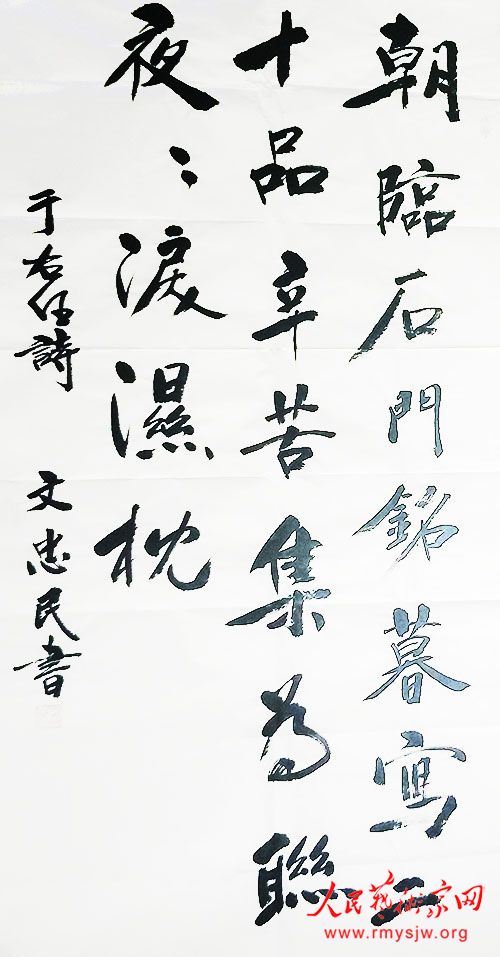 朝臨石門銘暮寫二
十品辛苦集為聯
夜〻淚濕枕
于右任詩 文忠民書
人民藝術家网
www.rmysjw.org